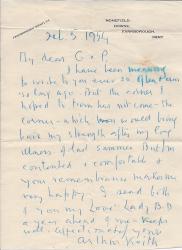 HOMEFIELD,
DOWNE,
FARNBOROUGH,
KENT
Feb. 3 1954
My dear G & P
I have been meaning
to write you ever so often
so long ago. But the corner I
hoped to turn has not come - the
corner - which would bring
back my strength after my
illness of last summer. But I'm
contented & comfortable &
your remembrance makes me
very happy. I send both
of you my love. Lady B D
a year ahead of me - keeps
well. affectionately yours
Arthur Keith